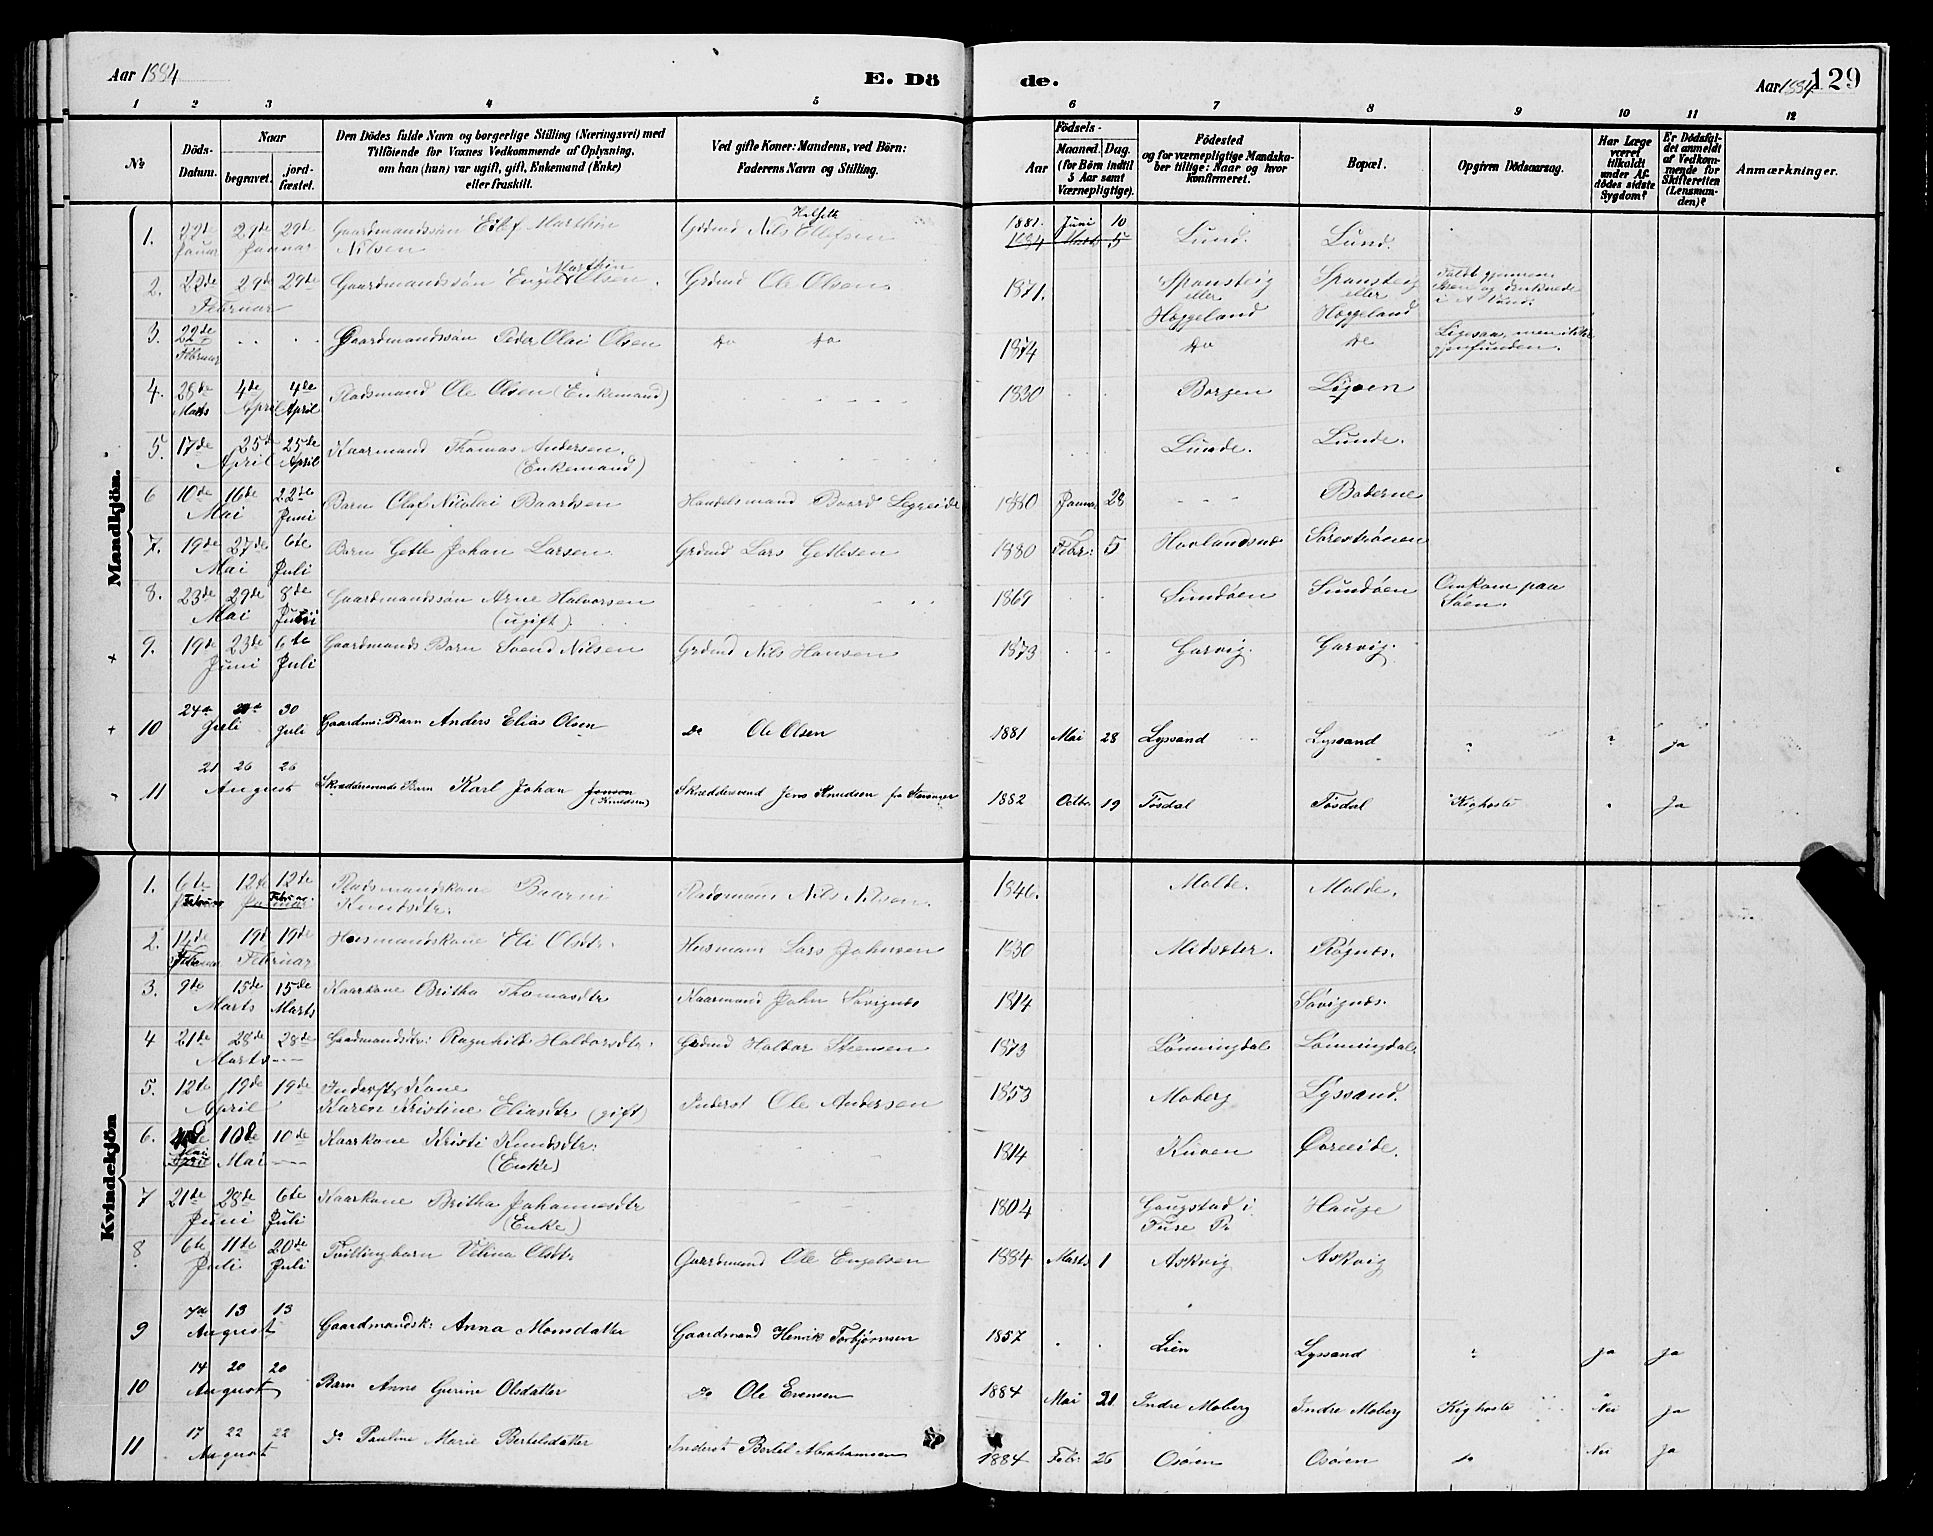 Aar 1884 E. Dö
de. Aar 1884 129
1 2 3 4 5 6 7 8 9 10 11 12
No Döds-Datum. Naar begravet. jord-fæstet. Den Dödes fulde Navn og borgerlige Stilling (Næringsvei) med Tilföiende for Voxnes Vedkommende af Oplysning, om han (hun) var ugift, gift, Enkemand (Enke) eller fraskilt. Ved gifte Koner: Mandens, ved Börn: Faderens Navn og Stilling. Födsels- Aar Maaned. Dag. (for Börn indtil 5 Aar samt Værnepligtige). Födested og for værnepligtige Mandskaber tillige: Naar og hvor konfirmeret. Bopæl. Opgiven Dödsaarsag. Har Læge været tilkaldt under Afdödes sidste Sygdom? Er Dödsfaldet anmeldt af Vedkommende for Skifteretten (Lensmanden)? Anmærkninger.
Mandkjön.
1. 22de Januar 29de 29de Januar Gaardmandssön Marthin Nilsen Grdmd Nils Ellefsen 1881. Juni 10 1884 5 Lund. Lund.
2. 22de 29de 29de Februar Gaardmandssön Engel Marthin Olsen. Grdmd Ole Olsen 1871. eller Hæggeland eller Hæggeland Faldt gjennem Isen og druknede i Vand.
3. 22de Februar Gaardmandssön Peder Olai Olsen Do Do 1874 Do Do Ligesaa, men ikke gjenfunden.
4. 28de Marts 4de April 4de April Pladsmand Ole Olsen (Enkemand) 1830 Borgen
5. 17de 25de April 25de April Kaarmand Thomas Andersen. (Enkemand) Lunde. Lunde.
6 10de 16de Mai 22de Juni Barn Olaf Nicolai Baardsen Handelsmand Baard 1880 Januar 28
7. 19de 27de Mai 6te Juli Barn Getle Johan Larsen. Grdmd Lars Getlesen 1880 Febr: 5
8. 23de 29de Mai 8de Juni Gaardmandssön Arne Halvorsen (ugift). 1869 Sundøen Sundøen Omkom paa Søen.
+ 9. 19de 23de Juni 6te Juli Gaardmands Barn Svend Nilsen Grdmd Nils Hansen 1873 Garvig. Garvig.
+ 10 24de Juli 30 Juli Gaardm: Barn Anders Elias Olsen Do Ole Olsen 1881 Mai 28 Lyssand Lyssand " " ja
11 21 26 26 August Barn Karl Johan Jonsen (Knudsen) Skræddersvend Jens Knudsen fra Stavanger 1882 Octbr. 19 Tøsdal Tøsdal Kighoste " Ja
Kvindekjön
1. 6te Februar 12te 12te Januar Februar Pladsmandskone Knudsdtr. Pladsmand Nils Nilsen. 1846. Molde. Molde.
2. 14de Februar 19d 19de Februar Husmandskone Eli Olsdtr. Husmand Lars Johnsen 1830 Midsæter. Røgnes.
3. 9de 15de Marts 15de Marts Kaarkone Britha Thomasdtr Kaarmand John Søvignes 1814 Søvignes.
4 21de 28de 28de Marts Gaardmandsdtr: Ragnhild Haldorsdtr. Grdmd Haldor Steensen 1873 Lønningdal Lønningdal.
5. 12te 19de 19de April Inderst Kone Karen Kristine Eliasdtr (gift) Inderst Ole Andersen 1853 Moberg Lyssand.
6. Mai April 10de 10de Mai Kaarkone Kristi Knudsdtr: (Enke) 1814 Kuven Øvreeide.
7 21de 28de Juni 6te Juli Kaarkone Britha Johannesdtr (Enke) 1804 Gaugstad i Fuse Pr Hauge
8 6te 11te Juli 20de Juli Tvillingbarn Velina Olsdtr Gaardmand Ole Engelsen 1884 Marts 1 Askvig Askvig
9 7de 13 13 August Gaardmandsk: Anna Monsdatter Gaardmand Henrik Torbjørnsen 1857 Lien Lyssand " ja ja
10 14 20 20 August Barn Anna Gurine Olsdatter Do Ole Evensen 1884 Mai 21 Indre Moberg Indre Moberg Kighoste Nei ja
11 17 22 22 August Do Pauline Marie Bertelsdatter Inderst Bertel Abrahamsen 1884 Febr: 26 Osøren Osøren Do Nei Ja